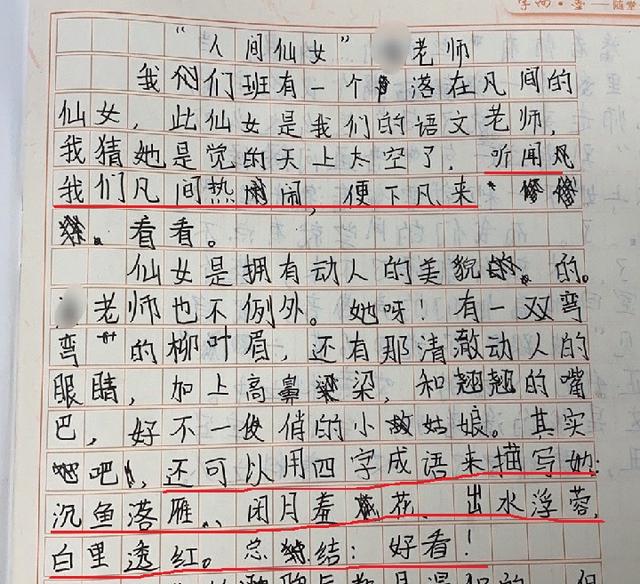 “人间仙女” 老师
我们班有一个落在凡间的
仙女，此仙女是我们的语文老师，
我猜她是觉的天上太空了，听闻凡
我们凡间热闹，便下凡来
看看。
仙女是拥有动人的美貌的。
老师也不例外。她呀！有一双弯
弯的柳叶眉，还有那清澈动人的
眼睛，加上高鼻梁，和翘翘的嘴
巴，好不一俊俏的小姑娘。其实
吧，还可以用四字成语来描写她：
沉鱼落雁、闭月羞花、出水浮蓉，
白里透红。总结：好看！